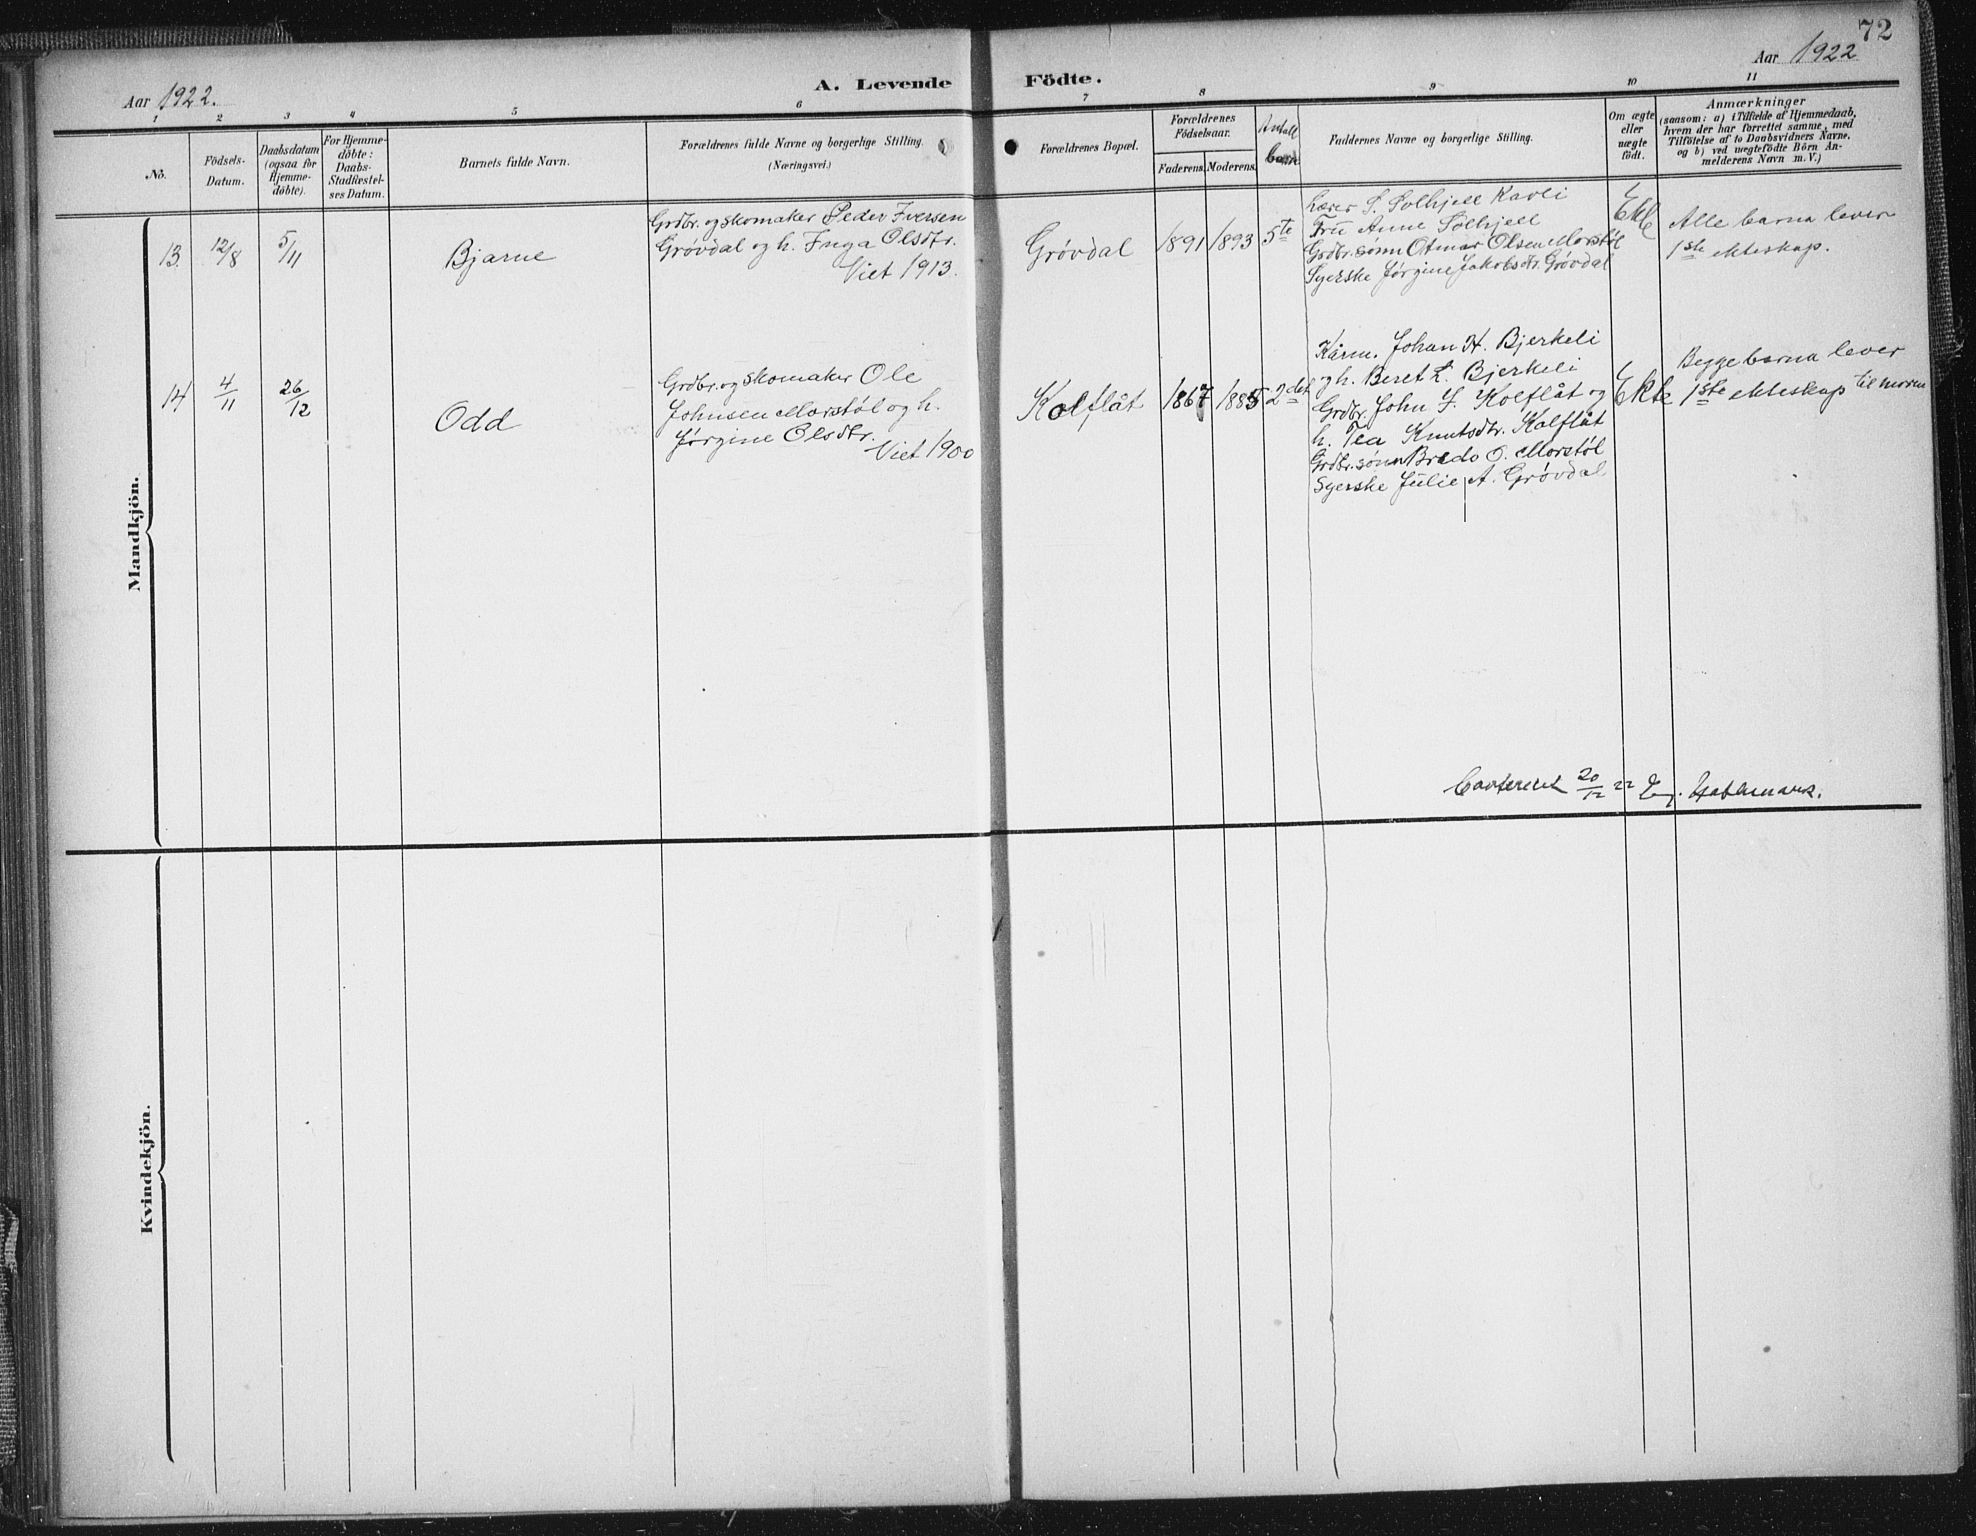 72
Aar 1922.
A. Levende Födte.
Aar 1922
1 2 3 4 5 6 7 8 9 10 11
No.
Födsels-
Datum.
Daabsdatum
(ogsaa for
Hjemme-
döbte).
For Hjemme-
döbte:
Daabs-
Stadfæstel-
ses Datum.
Barnets fulde Navn.
Forældrenes fulde Navne og borgerlige Stilling.
(Næringsvei.)
Forældrenes Bopæl.
Forældrenes
Födselsaar.
Faderens. Moderens.
Antall
barn
Faddernes Navne og borgerlige Stilling.
Om ægte
eller
uægte
födt.
Anmærkninger
(saasom: a) i Tilfælde af Hjemmedaab,
hvem der har forrettet samme, med
Tilföielse af to Daabsvidners Navne,
og b) ved uægtefödte Börn An-
melderens Navn m. V.)
Mandkjön.
13.
12/8
5/11
Bjarne
Grdbr. og skomaker Peder Iversen
Grøvdal og h. Inga Olsdtr.
Viet 1913.
Grøvdal
1891
1893
5te
Lærer S. Solhjell Kavli
Fru Anne Solhjell
Grdbr.sønn Otmar Olsen Morstøl
Syerske Jørgine Jakobsdtr. Grøvdal
Alle barna lever
1ste ekteskap.
14
4/11
26/12
Odd
Grdbr. og skomaker Ole
Johnsen Morstøl og h.
Jørgine Olsdtr.
Viet 1900
Kolflåt
1867
1885
2det
Kårm. Johan H. Bjerkeli
og h. Beret L. Bjerkeli
Grdbr. John S. Kolflåt og
h. Tea Knutsdtr. Kolflåt
Grdbr.sønn Bredo O. Morstøl
Syerske Julie A. Grøvdal
Ekte
Begge barna lever
1ste ekteskap til moren
20/12 22
Kvindekjön.